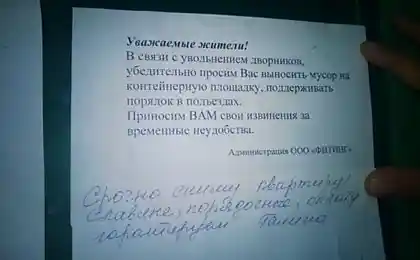 Уважаемые жители!
В связи с увольнением дворников,
убедительно просим Вас выносить мусор на
контейнерную площадку, поддерживать
порядок в подъездах.
Приносим ВАМ свои извинения за
временные неудобства.
Администрация ООО «ФИТИНГ»
Срочно сниму квартиру!
Славяне, порядочные, оплату
гарантируем Галина